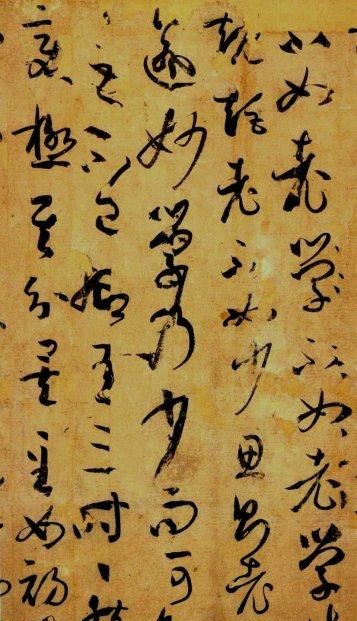 不如老學不如老學
規矩老不如少思則老
逾妙學乃少而可
之不已抑有三時〻
變極其分矣至如初